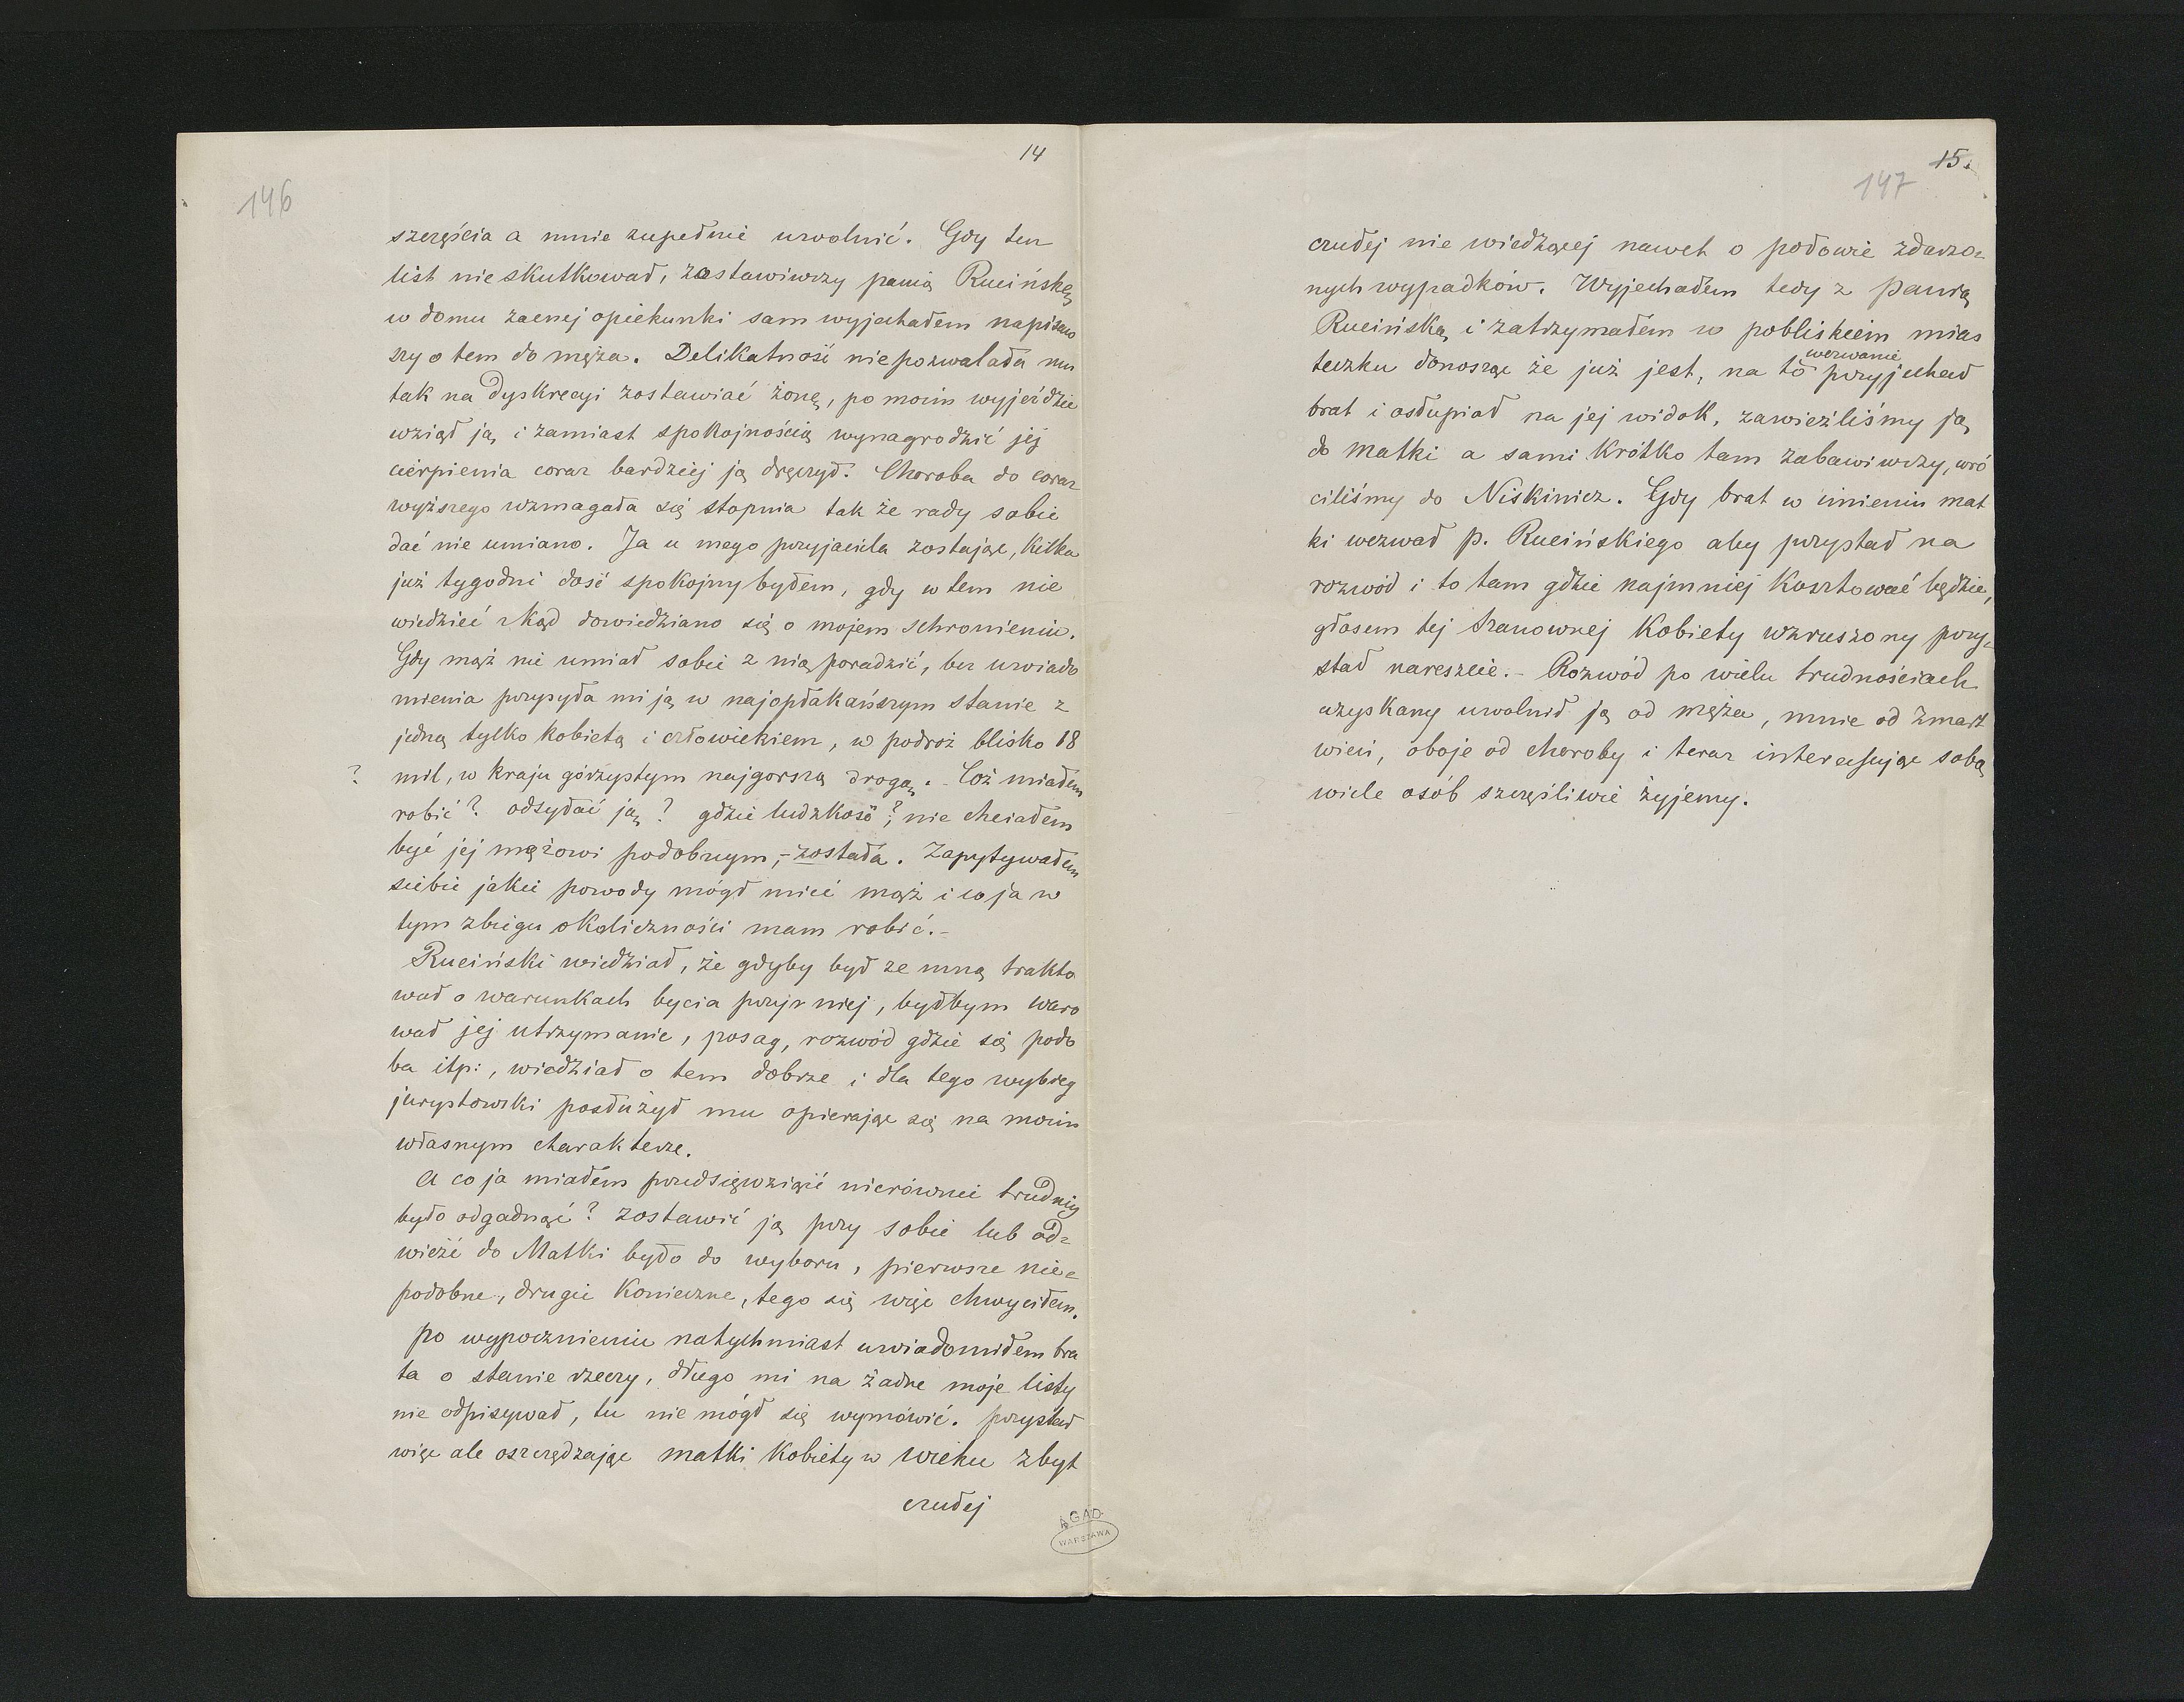 14
146
szczęścia a mnie zupełnie uwolnić. Gdy ten
list nie skutkował, zostawiwszy panią Rucińską
w domu zacnej opiekunki sam wyjechałem napisaw
szy o tem do męża. Delikatność nie pozwalała mu
tak na dyskrecyi zostawiać żonę, po moim wyjeździe
wziął ją, i zamiast spokojnością wynagrodzić jej
cierpienia coraz bardziej ją dręczył. Choroba do coraz
wyższego wzmagała się stopnia tak że rady sobie
dać nie umiano. Ja u mego przyjaciela zostając, kilka
już tygodni dość spokojny byłem, gdy w tem nie
wiedzieć skąd dowiedziano się o mojem schronieniu.
Gdy mąż nie umiał sobie z nią poradzić, bez uwiado
mienia przysyła mi ją w najopłakańszym stanie z
jedną tylko kobietą i człowiekiem, w podróż blisko 18
? mil, w kraju górzystym najgorszą drogą. - Cóż miałem
robić? odsyłać ją? gdzie ludzkość?, nie chciałem
być jej mężowi podobnym, - została. Zapytywałem
siebie jakie powody mógł mieć mąż i co ja w
tym zbiegu okoliczności mam robić. -
Ruciński wiedział, że gdyby był ze mną trakto
wał o warunkach bycia przy niej, byłbym waro
wał jej utrzymanie, posag, rozwód gdzie się podo
ba itp:, wiedział o tem dobrze i dla tego wybieg
jurystowski posłużył mu opierając się na moim
własnym charakterze.
A co ja miałem przedsięwziąć nierównie trudniej
było odgadnąć? zostawić ją przy sobie lub od=
wieźć do Matki było do wyboru, pierwsze nie=
podobne, drugie konieczne, tego się więc chwyciłem.
Po wypocznieniu natychmiast uwiadomiłem bra
ta o stanie rzeczy, długo mi na żadne moje listy
nie odpisywał, tu nie mógł się wymówić. przystał
więc ale oszczędzając matki kobiety w wieku zbyt
czułej
AGAD
WARSZAWA
15.
147
czułej nie wiedzącej nawet o połowie zdarzo=
nych wypadków. Wyjechałem tedy z panią
Rucińską i zatrzymałem w pobliskiem mias
teczku donosząc że już jest, na to wezwanie przyjechał
brat i osłupiał na jej widok, zawieźliśmy ją
do matki a sami krótko tam zabawiwszy, wró
ciliśmy do Niskinicz. Gdy brat w imieniu mat
ki wezwał p. Rucińskiego aby przystał na
rozwód i to tam gdzie najmniej kosztować będzie,
głosem tej szanownej kobiety wzruszony przy=
stał nareszcie. - Rozwód po wielu trudnościach
uzyskany uwolnił ją od męża, mnie od zmart
wień, oboje od choroby i teraz interesując sobą
wiele osób szczęśliwie żyjemy.